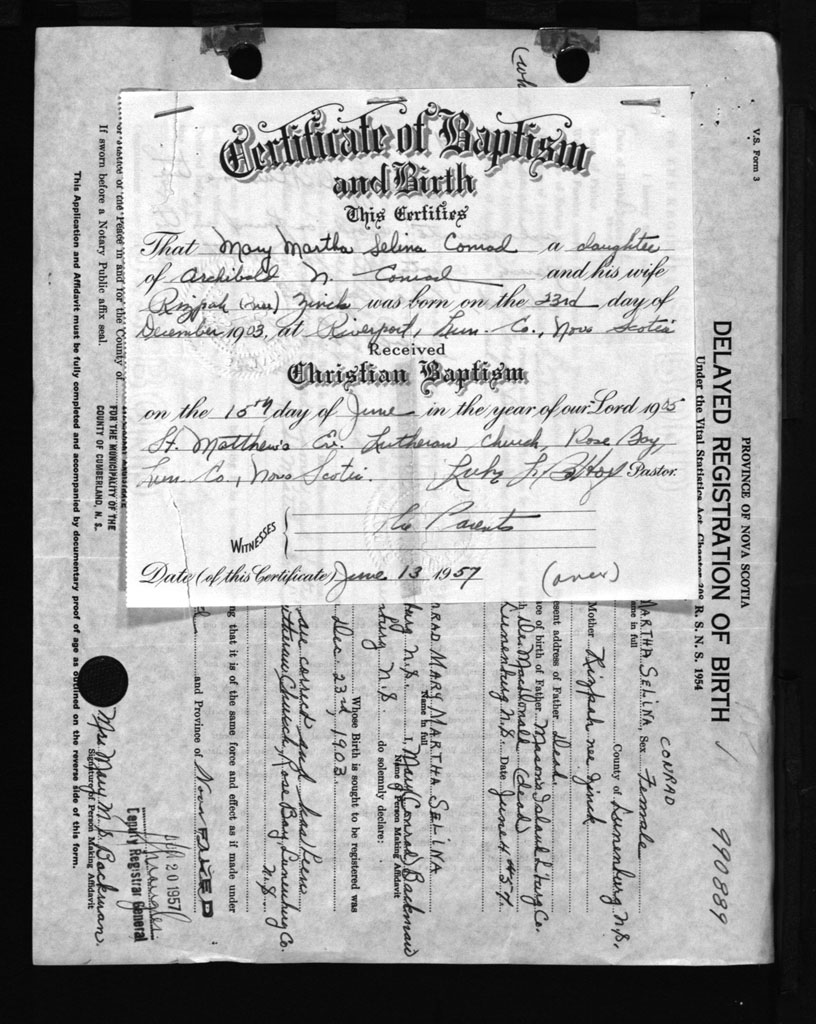 Certificate of Baptism
and Birth
This Certifies
That Mary Martha Selina Conrad a daughter
of Archibald N. Conrad and his wife
Rizpah (nee) Zinck was born on the 23rd day of
December 1903, at Riverport, Lun. Co., Nova Scotia
Received
Christian Baptism
on the 15th day of June in the year of our Lord 1905
St. Matthew's Ev. Lutheran Church, Rose Bay,
Lun. Co., Nova Scotia. Pastor.
WITNESSES The Parents
Date (of this Certificate) June 13 1957 (over)
V.S. Form 3
PROVINCE OF NOVA SCOTIA
DELAYED REGISTRATION OF BIRTH
Under the Vital Statistics Act, Chapter R. S. N. S. 1954
990889
CONRAD
MARTHA SELINA, Sex Female
in full
County of Lunenburg N.S.
Mother Rizpah nee Zinck
esent address of Father Dead
ce of birth of Father Mason's Island L'burg Co.
Dr. MacDonald (dead)
Lunenburg N.S. Date June 4 57
NRAD MARY MARTHA SELINA
Name in full
burg N.S. I, Mary (Conrad) Backman
Name of Person Making Affidavit
burg N.S. do solemnly declare:
Whose Birth is sought to be registered was
Dec. 23rd, 1903.
are correct and has been
utheran Church, Rose Bay, Lunenburg Co.
N.S.
ng that it is of the same force and effect as if made under
and Province of Nova
Mrs Mary M. S. Backman.
Signature of Person Making Affidavit
20 1957
Deputy Registrar General
of the Peace in and for the County of
FOR THE MUNICIPALITY OF THE
COUNTY OF CUMBERLAND, N. S.
If sworn before a Notary Public affix seal.
This Application and Affidavit must be fully completed and accompanied by documentary proof of age as outlined on the reverse side of this form.